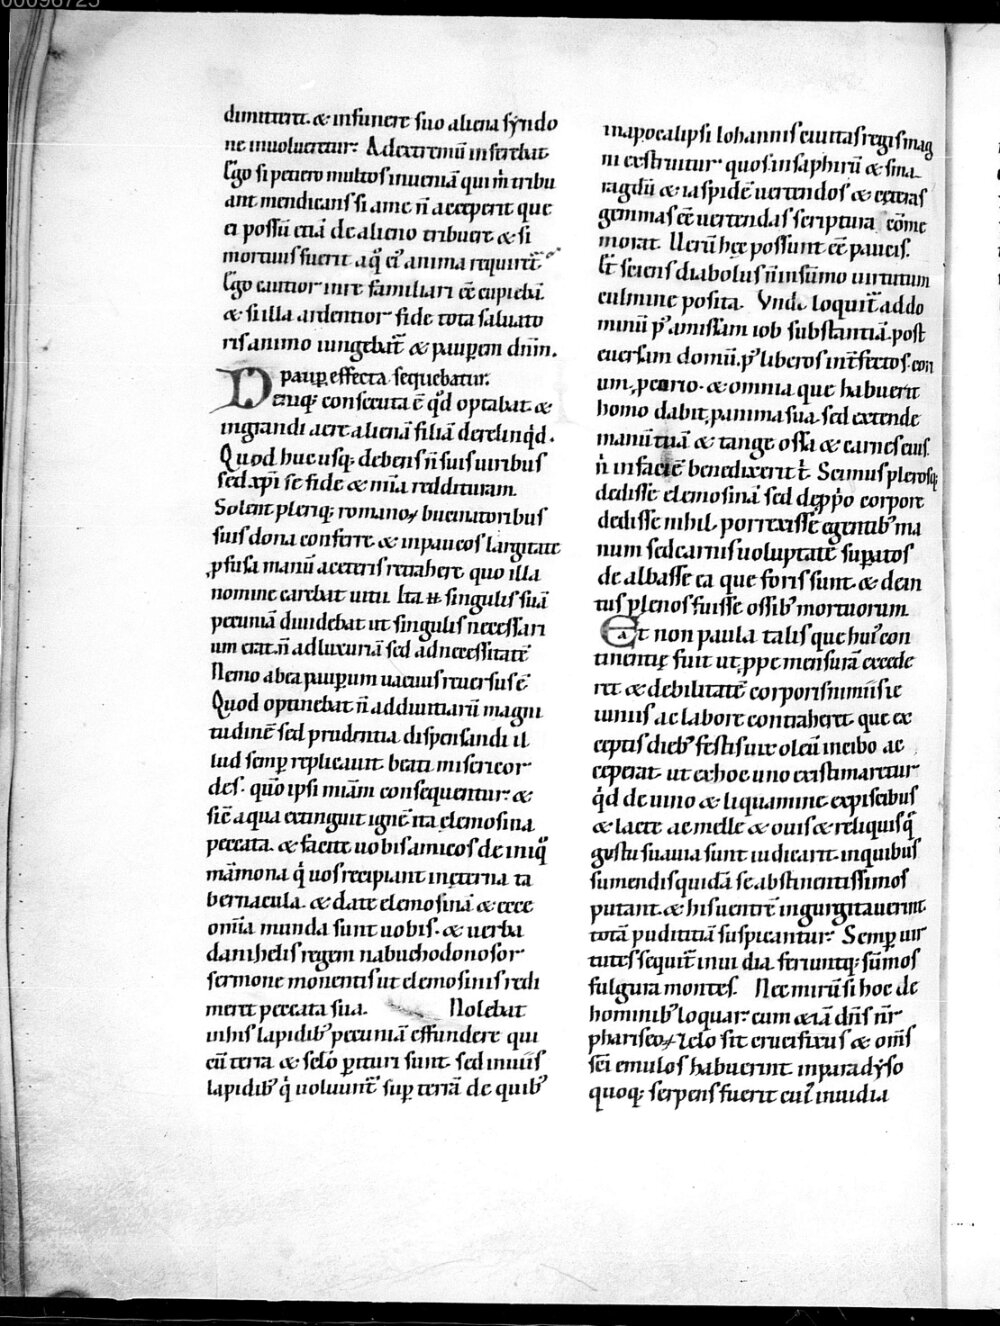 00096725
dimittere. & infunere suo aliena sẏndo
ne inuolueretur. Ad extremũ inferebat
Ego si petiero multos inueniã qui m̃ tribu
ant mendicans si a me ñ acceperit que
ei possũ etiã de alieno tribuere & si
mortuus fuerit a q̃ ei᷒ anima requiret᷑
Ego cautior in re familiari eẽ cupiebã
& si illa ardentior fide tota saluato
ris animo iungebat᷑ & pauꝑem dñm.
paup̱ effecta sequebatur.
Deniq; consecuta ẽ qd̾ optabat &
in grandi aere alienã filiã derelinqd̾.
Quod huc usq; debens ñ suis uiribus
sed xp̃i se fide & mĩa reddituram.
Solent pleriq; romanoꝝ bucinatoribus
suis dona conferre & in paucos largitate
ꝓfusa manũ a ceteris retrahere quo illa
nomine carebat uitii. Ita .n. singulis suã
pecuniã diuidebat ut singulis necessari
um erat. ñ ad luxuriã sed ad necessitatẽ
Nemo ab ea pauꝑum uacuus reuersus ẽ
Quod optinebat ñ ad diuitiarũ magni
tudinẽ sed prudentia dispensandi il
lud semꝑ replicauit. beati misericor
des. quõ ipsi mĩam consequentur. &
sic̃ aqua extinguit ignẽ ita elemosina
peccata. & facite uobis amicos de iniq̃
mãmona q̾ uos recipiant in ęterna ta
bernacula. & date elemosinã & ecce
omĩa munda sunt uobis. & uerba
danihelis regem nabuchodonosor
sermone monentis ut elemosinis redi
meret peccata sua. Nolebat
in his lapidib᷒ pecuniã effundere qui
cũ terra & sc̃lo ꝑituri sunt. sed in uiuis
lapidib᷒ q̾ uoluunt᷑ suꝑ terrã de quib᷒
in apocalipsi Iohannis ciuitas regis mag
ni exstruitur quos in saphirũ & sma
ragdũ & iaspidẽ uertendos & ceteras
gemmas eẽ uertendas scriptura cõme
morat. Uerũ hęc possunt eẽ paucis.
Et sciens diabolus ñ in sũmo uirtutum
culmine posita. Unde loquit᷑ ad do
minũ p᷒ amissam iob substantiã. post
euersam domũ. p᷒ liberos int̃fectos. cori
um, p corio. & omnia que habuerit
homo dabit, p anima sua. sed extende
manũ tuã & tange ossa & carnes eius.
ñ in faciẽ benedixerit t̾. Scimus plerosq;
dedisse elemosinã sed de ꝓprio corpore
dedisse nihil. porrexisse egentib᷒ ma
num sed carnis uoluptatẽ suꝑatos
de albasse ea que foris sunt & dein
tus plenos fuisse ossib᷒ mortuorum
At non paula talis que hui᷒ con
tinentię fuit ut ꝓpe mensurã excede
ret & debilitatẽ corporis nimiis ie
iuniis ac labore contraheret. que ex
ceptis dieb᷒ festis uix oleũ in cibo ac
ceperat. ut ex hoc uno existimaretur
qd̾ de uino & liquamine ex piscibus
& lacte ac melle & ouis & reliquis q̃
gustu suauia sunt iudicarit. in quibus
sumendis quidã se abstinentissimos
putant. & his uentrẽ ingurgitauerint
totã pudititiã suspicantur. Semꝑ uir
tutes sequit᷑ inuidia. feriuntq; sũmos
fulgura montes. Nec mirũ si hoc de
hominib᷒ loquar. cum & iã dñs nr̃
phariseoꝝ zelo sit crucifixus & om̃s
sc̃i emulos habuerint. in paradẏso
quoq; serpens fuerit cui᷒ inuidia